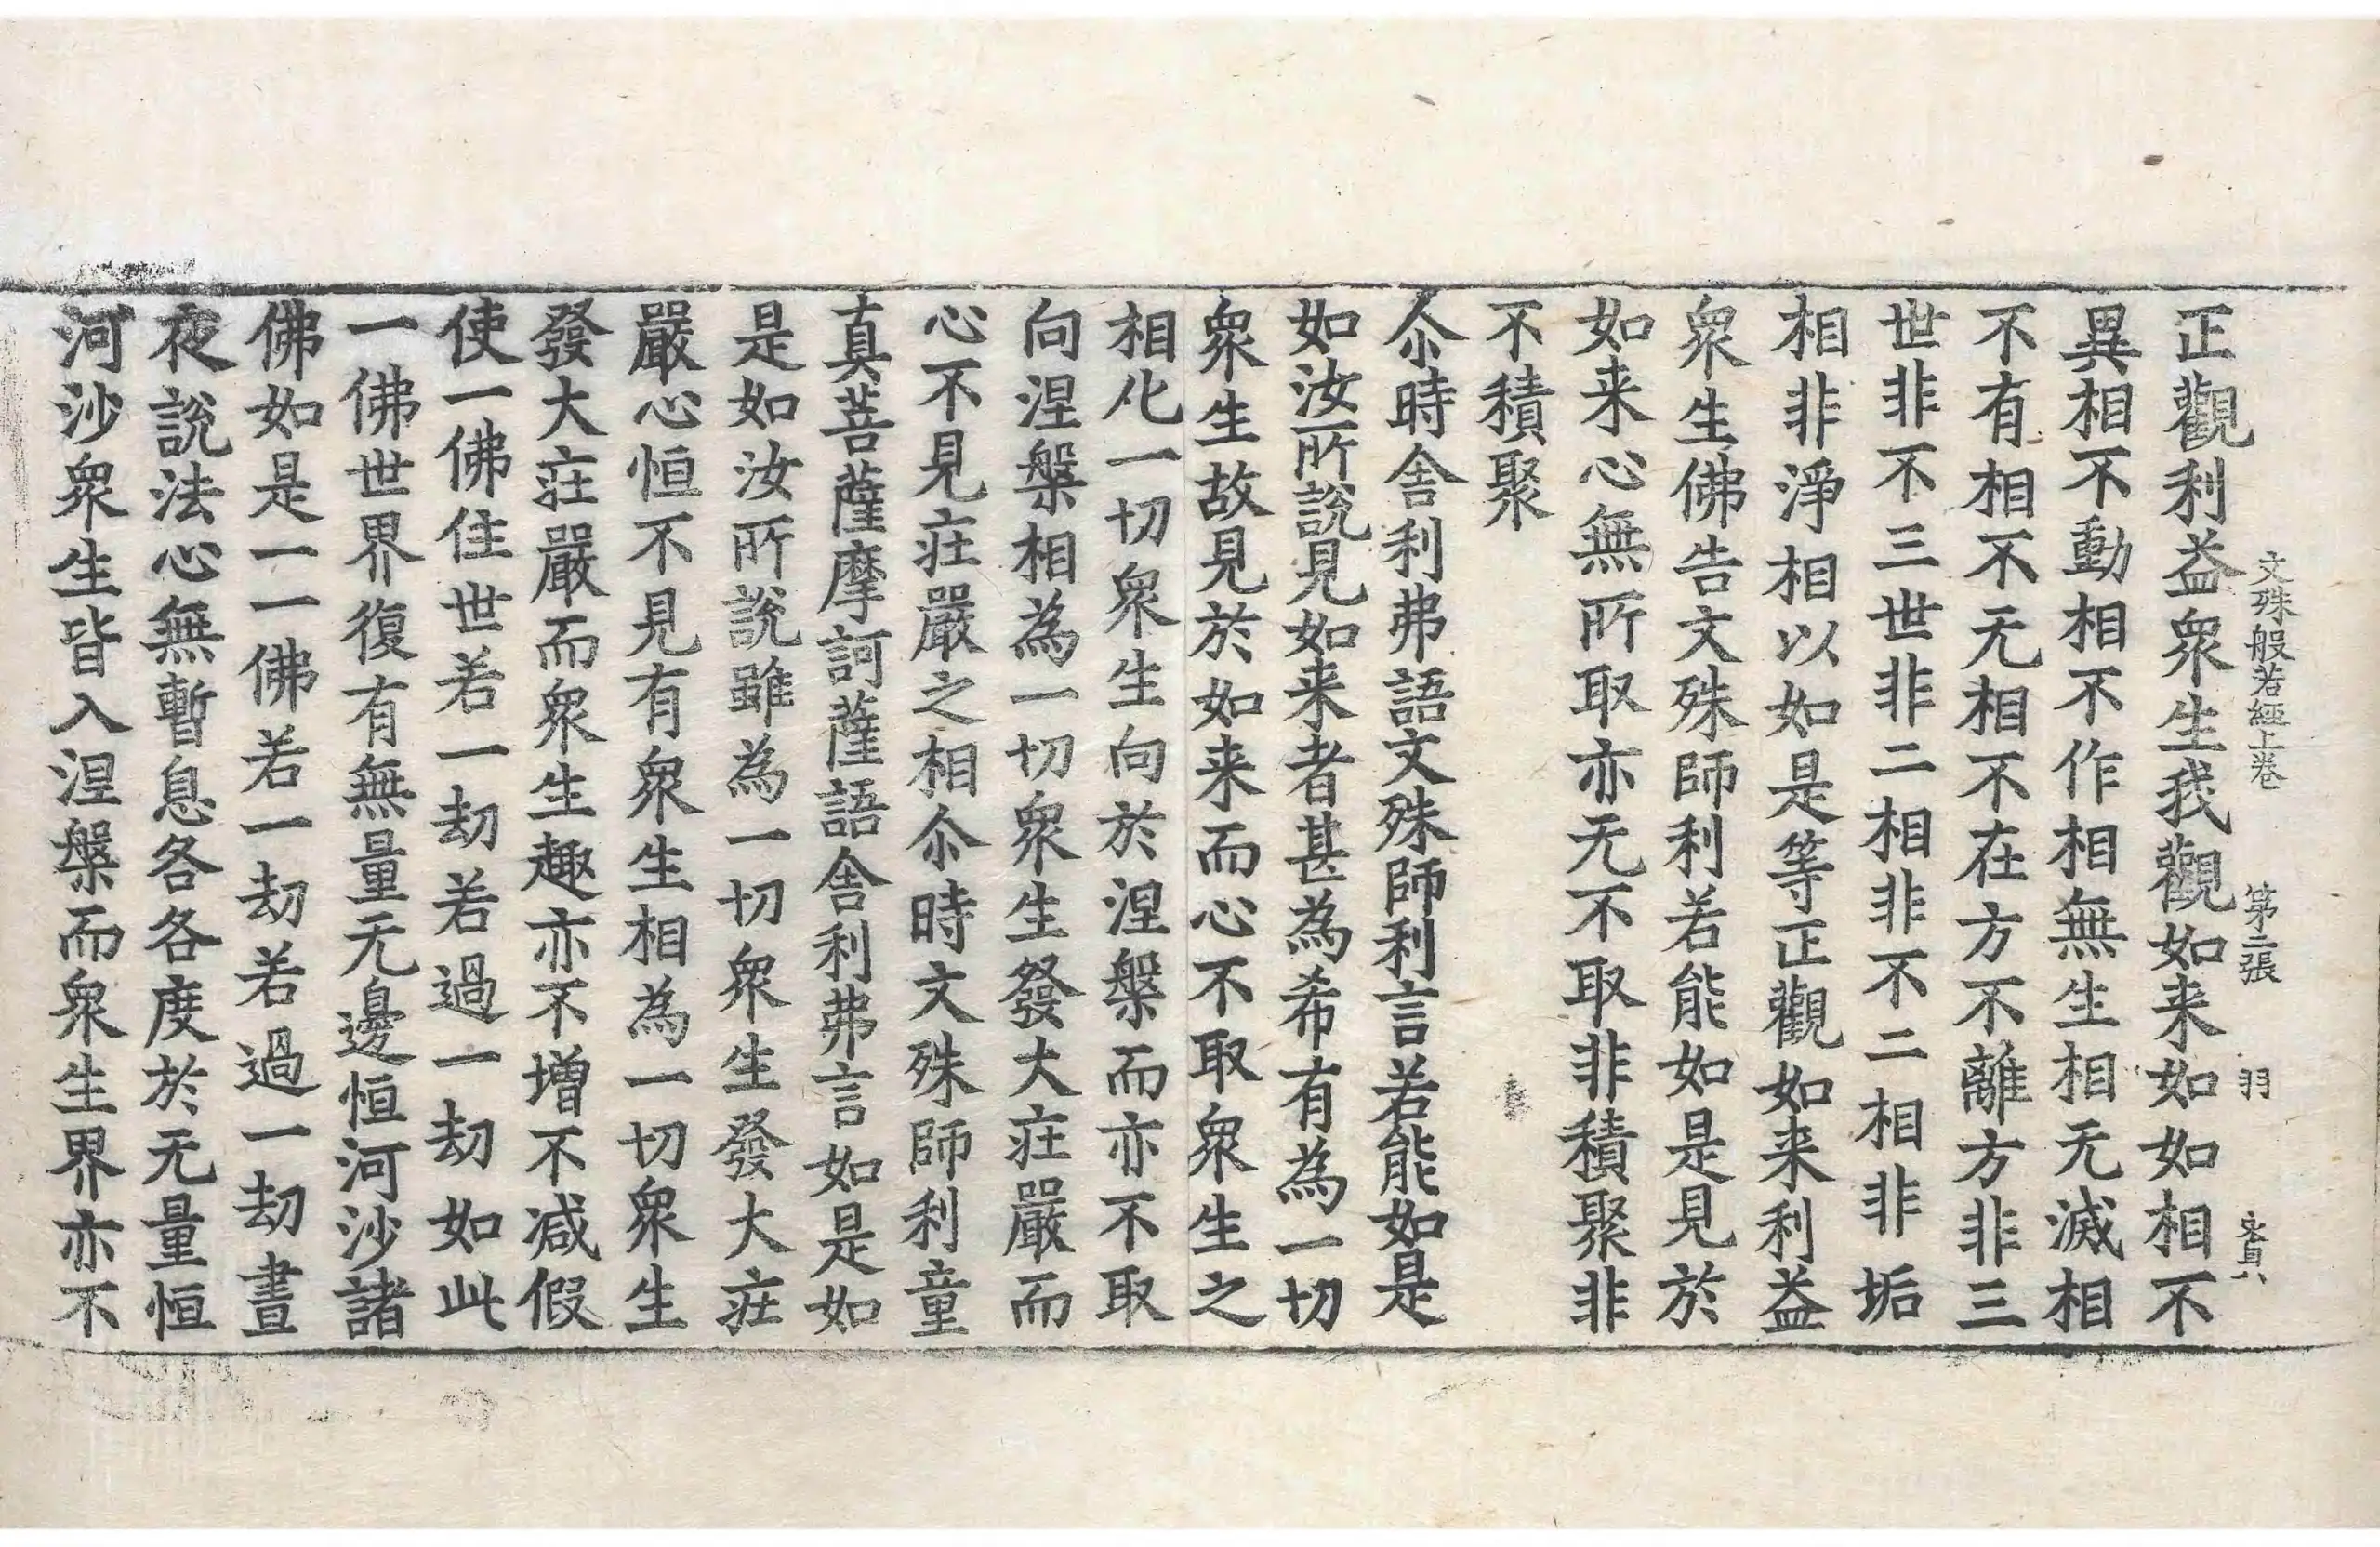 文殊般若經上卷 第二張 羽
正觀利益衆生我觀如来如如相不
異相不動相不作相無生相无滅相
不有相不无相不在方不離方非三
世非不三世非二相非不二相非垢
相非淨相以如是等正觀如来利益
衆生佛告文殊師利若能如是見於
如来心無所取亦无不取非積聚非
不積聚
尒時舍利弗語文殊師利言若能如是
如汝所說見如来者甚為希有為一切
衆生故見於如来而心不取衆生之
相化一切衆生向於涅槃而亦不取
向涅槃相為一切衆生發大莊嚴而
心不見莊嚴之相尒時文殊師利童
真菩薩摩訶薩語舍利弗言如是如
是如汝所說雖為一切衆生發大莊
嚴心恒不見有衆生相為一切衆生
發大莊嚴而衆生趣亦不增不減假
使一佛住世若一劫若過一劫如此
一佛世界復有無量无邊恒河沙諸
佛如是一一佛若一劫若過一劫晝
夜說法心無暫息各各度於无量恒
河沙衆生皆入涅槃而衆生界亦不